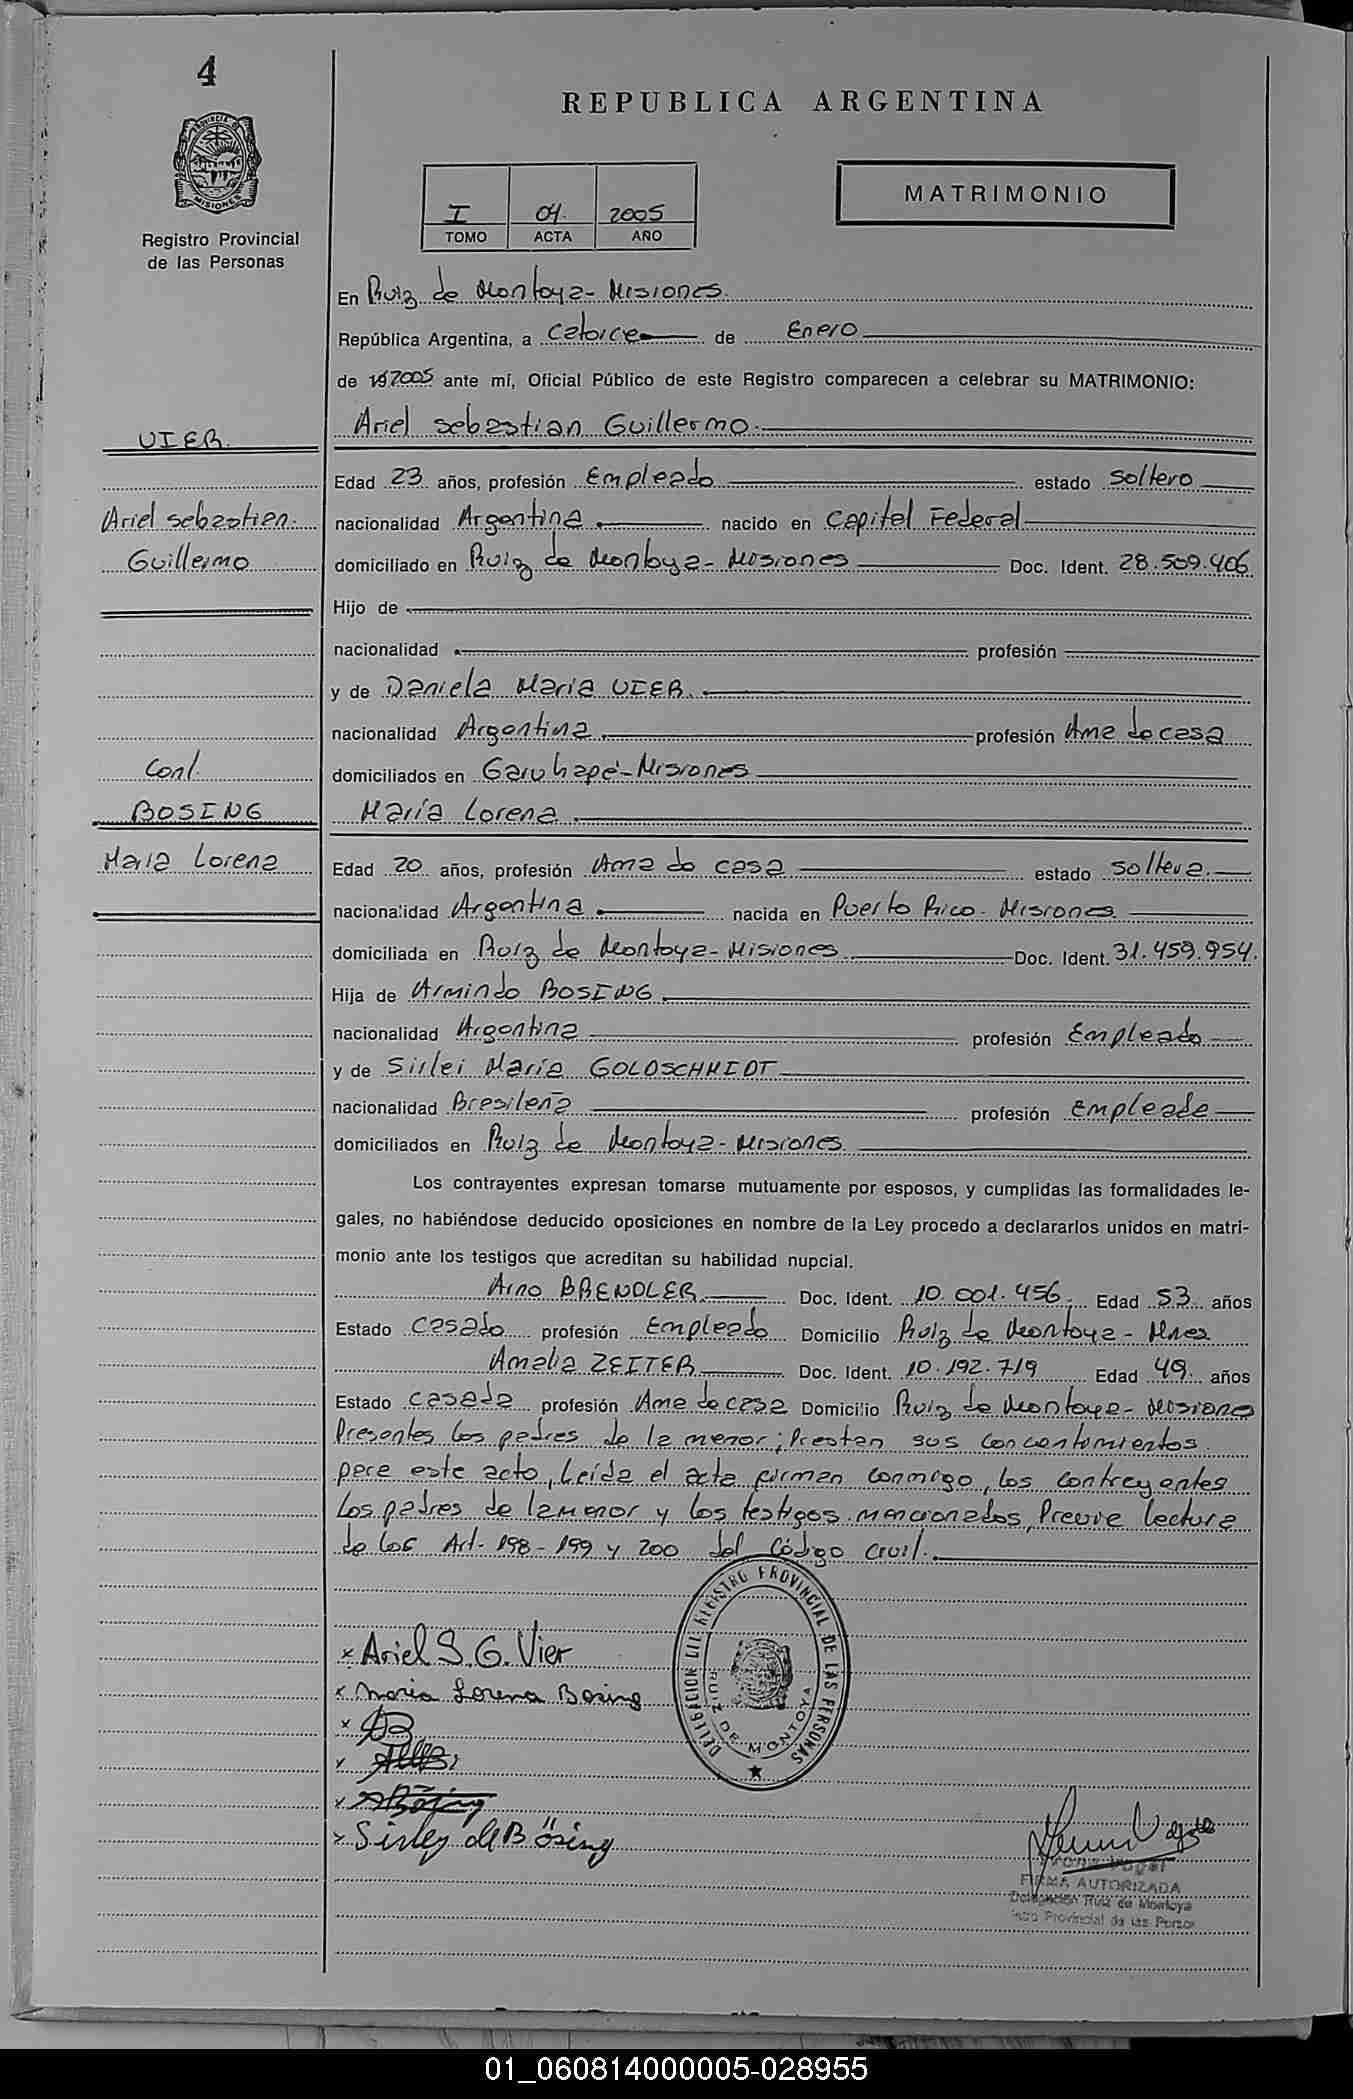 4
REPUBLICA ARGENTINA
PROVINCIA DE
MISIONES
Registro Provincial
de las Personas
I 04. 2005
TOMO ACTA AÑO
MATRIMONIO
En Ruiz de Montoya - Misiones.
República Argentina, a catorce de Enero
de 2005 ante mí, Oficial Público de este Registro comparecen a celebrar su MATRIMONIO:
VIER.
Ariel Sebastian Guillermo.
Edad 23 años, profesión Empleado estado soltero
Ariel Sebastian.
nacionalidad Argentina. nacido en Capital Federal
Guillermo
domiciliado en Ruiz de Montoya - Misiones Doc. Ident. 28.509.406
Hijo de
nacionalidad profesión
y de Daniela Maria VIER.
nacionalidad Argentina. profesión Ama de casa
Cont.
domiciliados en Garuhapé - Misiones
BOSING
María Lorena.
Maria Lorena
Edad 20 años, profesión Ama de casa estado soltera.
nacionalidad Argentina nacida en Puerto Rico - Misiones
domiciliada en Ruiz de Montoya - Misiones Doc. Ident. 31.459.954.
Hija de Armindo BOSING.
nacionalidad Argentina profesión Empleado
y de Sirlei María GOLDSCHMIDT
nacionalidad Brasileña profesión Empleada
domiciliados en Ruiz de Montoya - Misiones.
Los contrayentes expresan tomarse mutuamente por esposos, y cumplidas las formalidades le-
gales, no habiéndose deducido oposiciones en nombre de la Ley procedo a declararlos unidos en matri-
monio ante los testigos que acreditan su habilidad nupcial.
Arno BRENDLER. Doc. Ident. 10.001.456. Edad 53 años
Estado casado profesión Empleado Domicilio Ruiz de Montoya - Mnes
Amalia ZEITER Doc. Ident. 10.192.719 Edad 49 años
Estado casada profesión Ama de casa Domicilio Ruiz de Montoya - Misiones
Presentes los padres de la menor; Prestan sus concentimientos
para este acto, Leída el acta firman conmigo, los contrayentes
Los padres de la menor y los testigos mencionados, Previe lectura
de los Art. 198 - 199 y 200 del Código Civil.
DELEGACION REGISTRO PROVINCIAL DE LAS PERSONAS
RUIZ DE MONTOYA
x Ariel S. G. Vier
x Maria Lorena Bosing
x
x
x
x Sirley de Bösing
FIRMA AUTORIZADA
Delegación Ruiz de Montoya
Provincial de las Perso
01_060814000005-028955